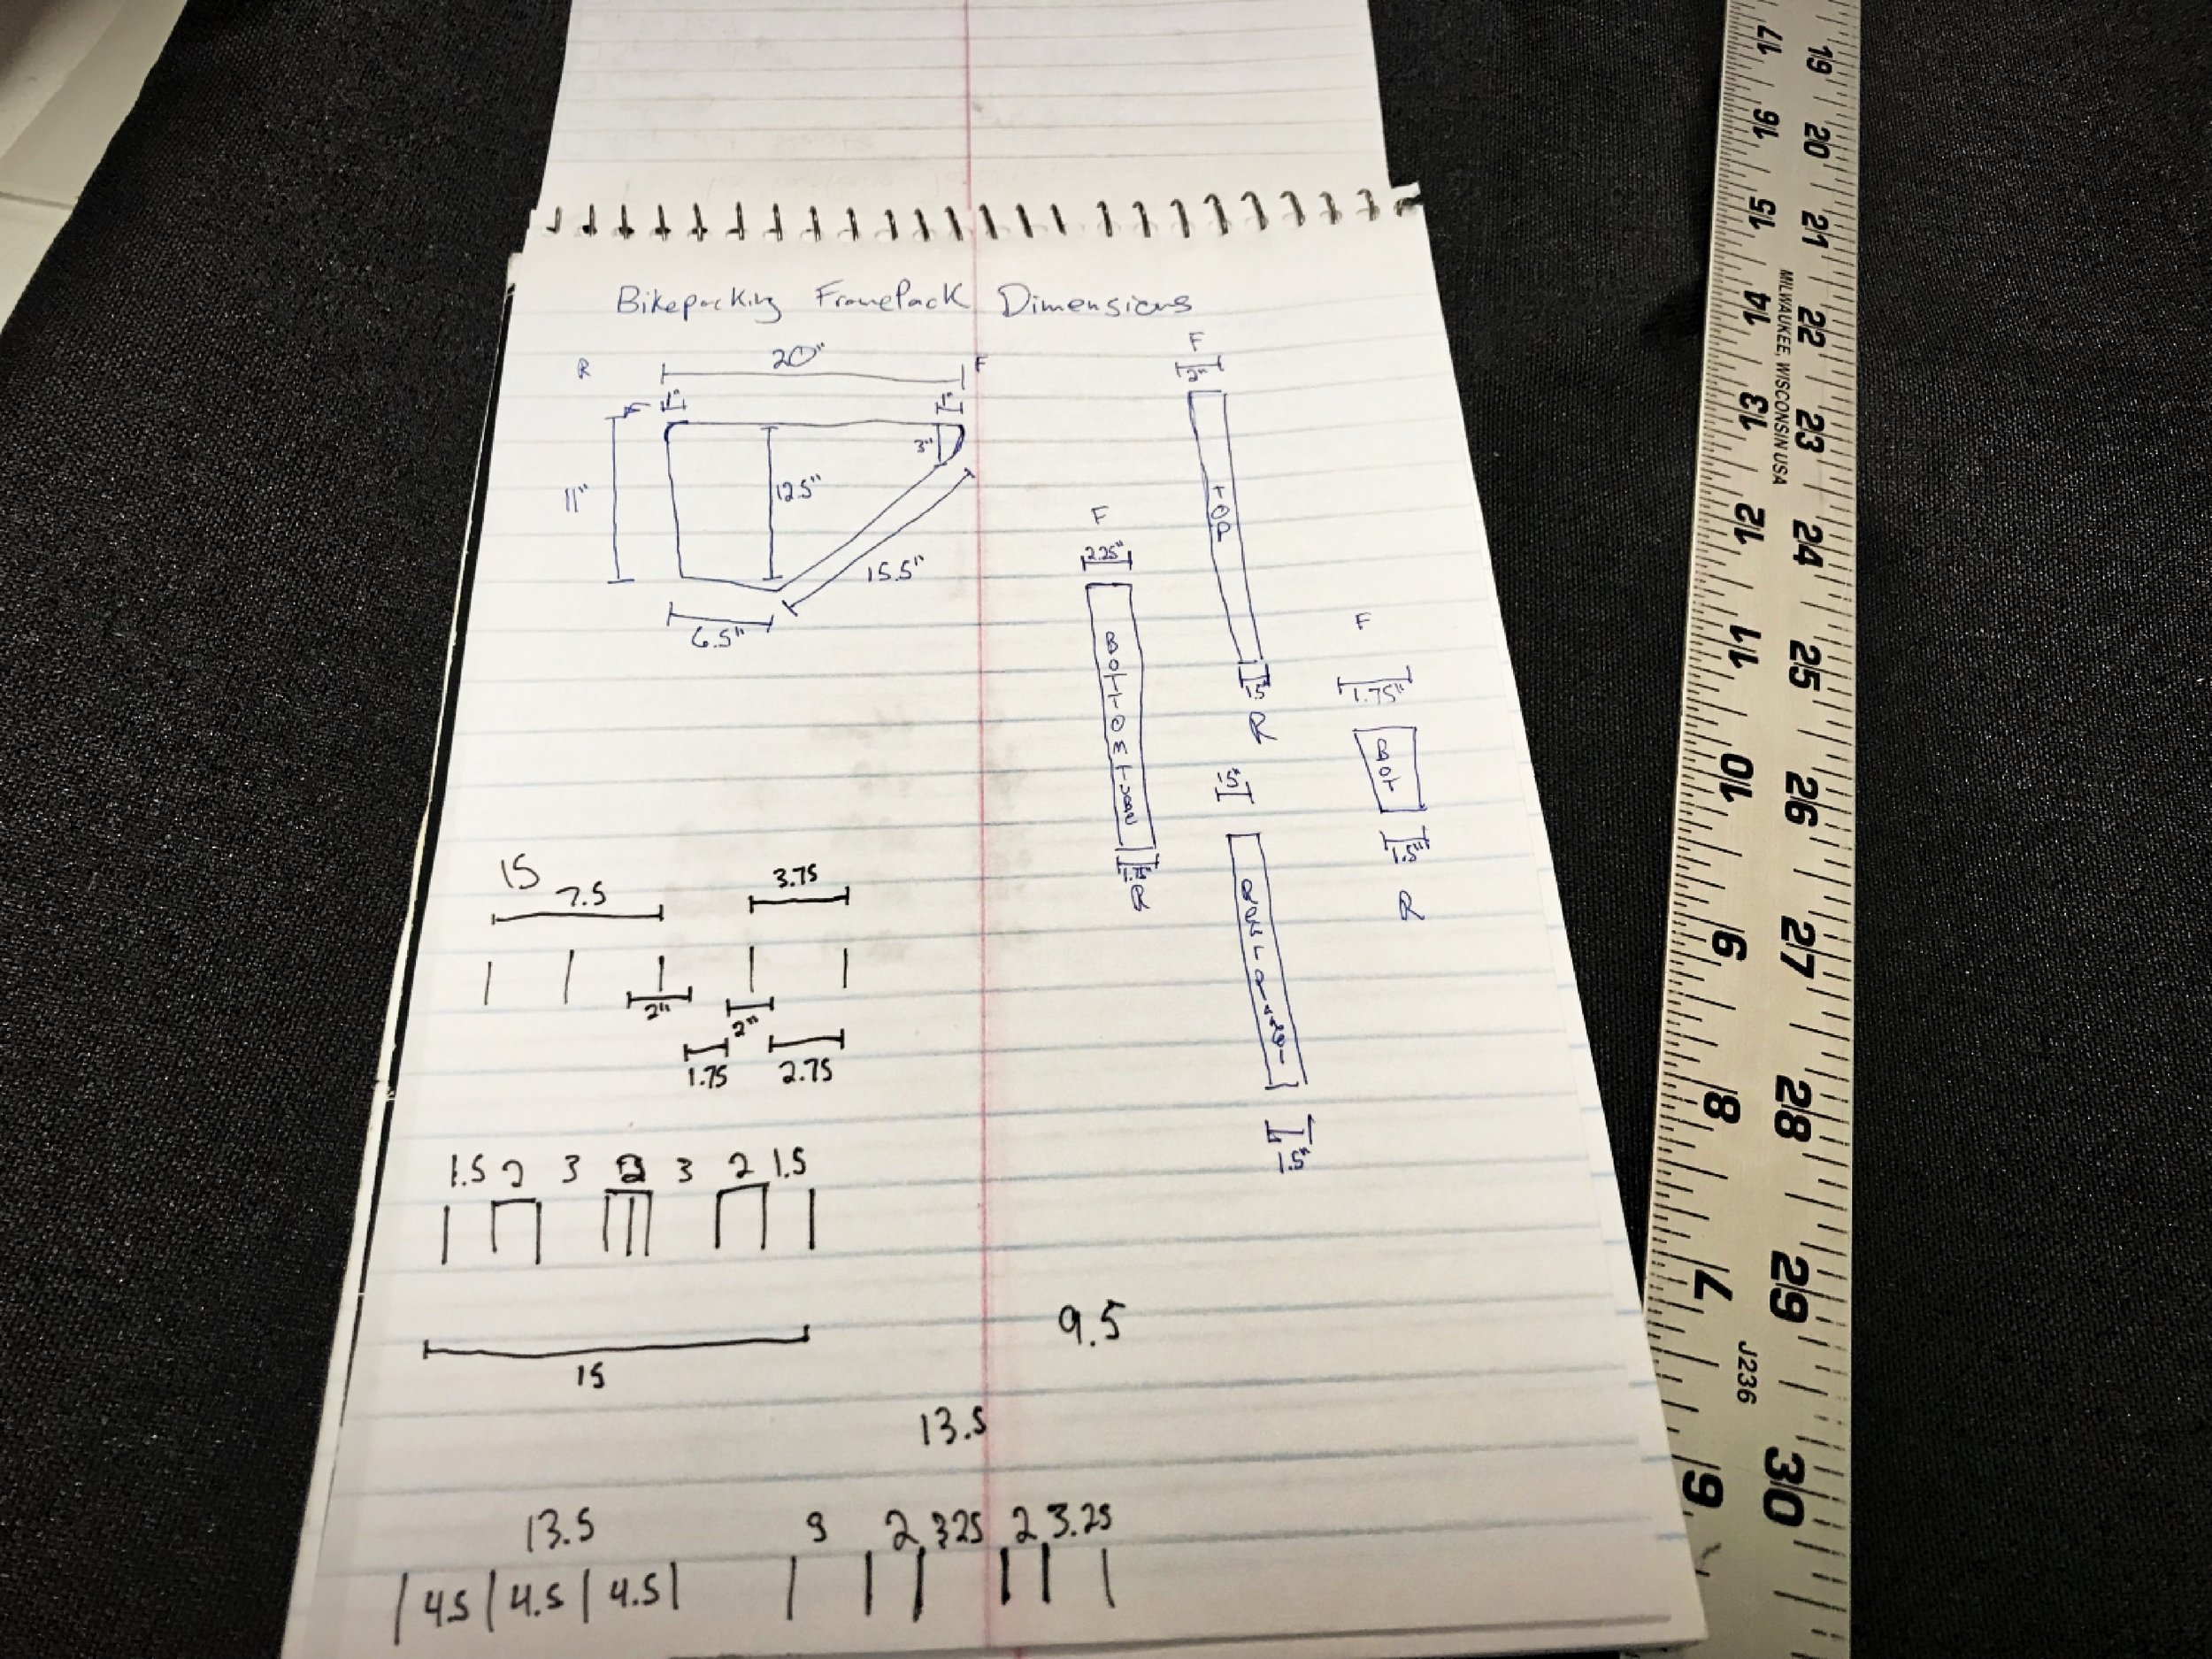 Bikepacking FramePack Dimensions
R 20" F
1" 1"
11" 12.5" 3"
15.5"
6.5"
F
2"
TOP
1.5"
R
F
2.25"
BOTTOM
R
F
1.75"
BOT
1.5"
R
1.5"
1.5"
15
7.5 3.75
2" 2"
1.75 2.75
1.5 2 3 2 3 2 1.5
15
9.5
13.5
13.5
4.5 4.5 4.5
2 3.25 2 3.25
17 16 15 14 13 12 11 10 9 8 7 6
19 20 21 22 23 24 25 26 27 28 29 30
MILWAUKEE, WISCONSIN USA
J236